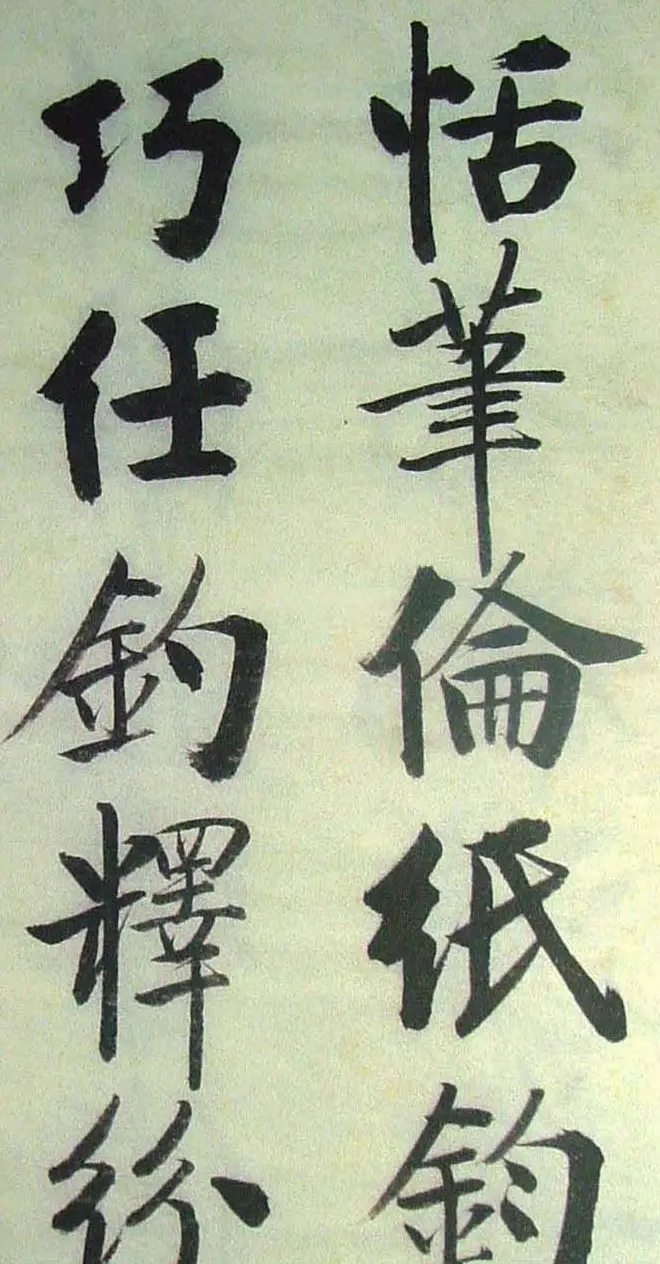 恬筆倫紙鈞
巧任釣釋紛